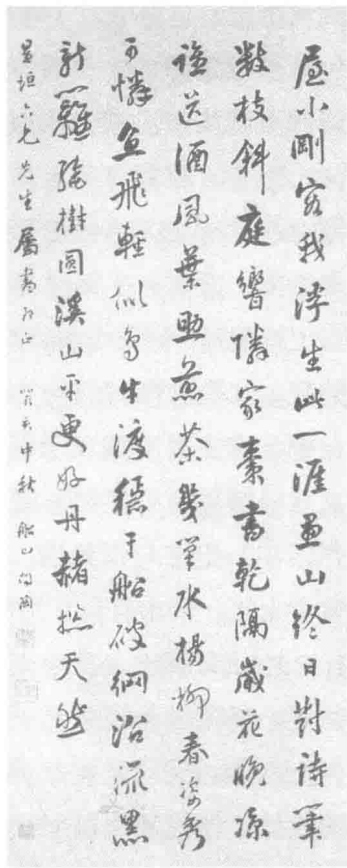 屋小剛容我浮生此一涯畫山終日對詩筆
數枝斜庭響隣家棗書乾隔歲花晚涼
誰送酒風葉助煎茶幾筆水楊柳春姿秀
可憐魚飛輕似鳥牛渡穩于船破網沿流黑
新籬繞樹圓溪山平更好丹赭總天然
星垣六兄先生屬書即正 癸亥中秋 船山問陶